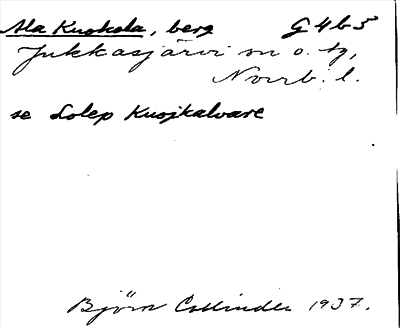 Ala Kuokola, berg G 4 b 5
Jukkasjärvi sn o. tg,
Norrb. l.
se Lolep Kuojkalvare
Björn Collinder 1937.